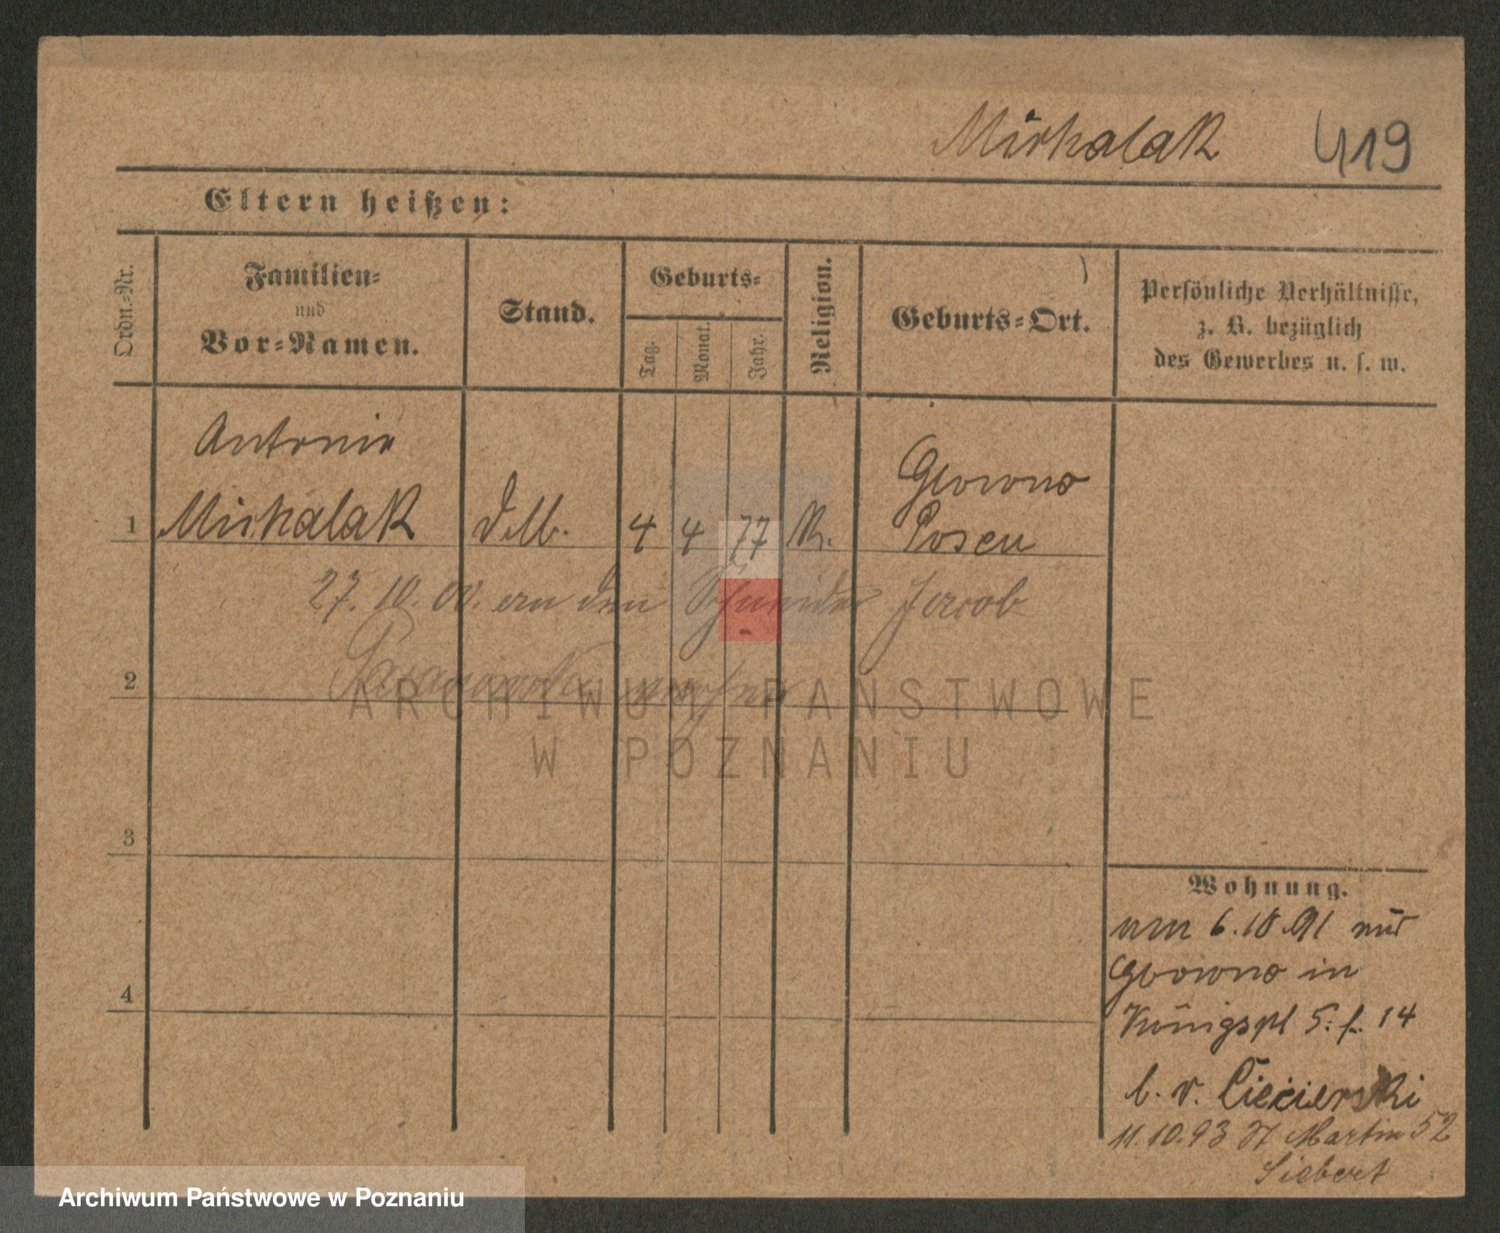 Michalak 419
Eltern heißen:
Ordn.=Nr.
Familien=
und
Vor=Namen.
Stand.
Geburts=
Tag.
Monat.
Jahr.
Religion.
Geburts=Ort.
Persönliche Verhältnisse,
z. B. bezüglich
des Gewerbes u. s. w.
Antonie
Glowno
1 Michalak 4 4 77 K. Posen
27. 10. 00. an den Schneider Jacob
2
3
4
Wohnung.
am 6.10.91 aus
Glowno in
Königspl 5. 14
b. v. Ciecierski
11.10.93 St Martin 52
Siebert
ARCHIWUM PAŃSTWOWE
W POZNANIU
Archiwum Państwowe w Poznaniu